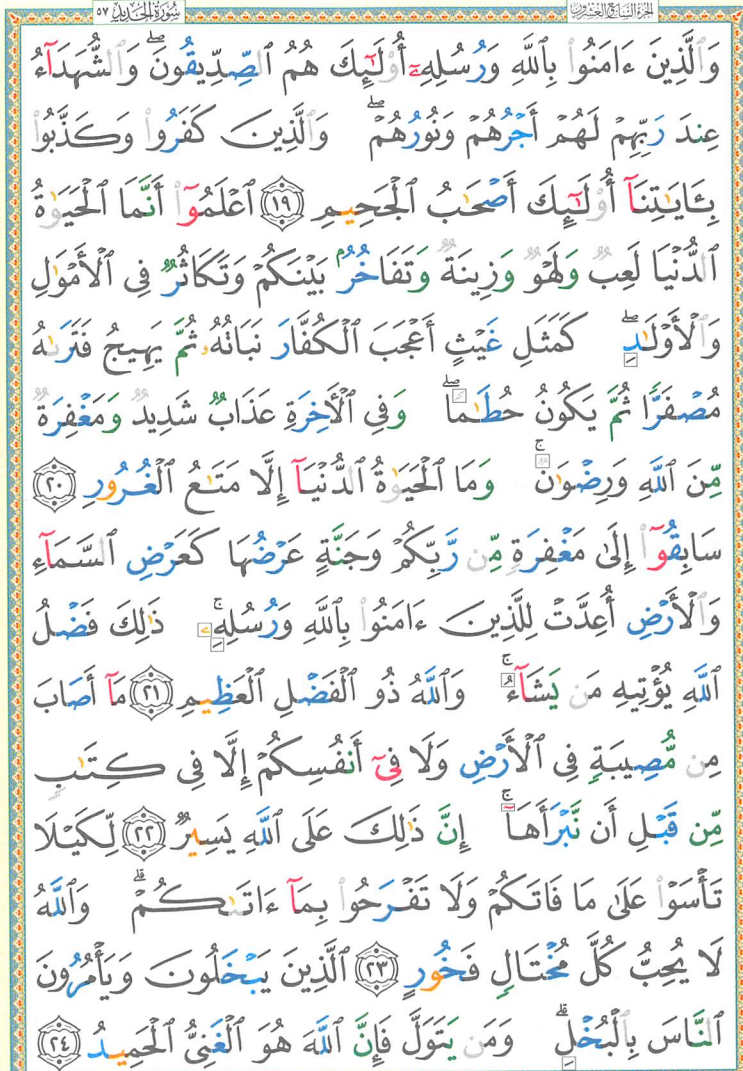 الجزء السابع والعشرون
سورة الحديد ٥٧
وَٱلَّذِينَ ءَامَنُوا۟ بِٱللَّهِ وَرُسُلِهِۦٓ أُو۟لَـٰٓئِكَ هُمُ ٱلصِّدِّيقُونَ ۖ وَٱلشُّهَدَآءُ
عِندَ رَبِّهِمْ لَهُمْ أَجْرُهُمْ وَنُورُهُمْ ۖ وَٱلَّذِينَ كَفَرُوا۟ وَكَذَّبُوا۟
بِـَٔايَـٰتِنَآ أُو۟لَـٰٓئِكَ أَصْحَـٰبُ ٱلْجَحِيمِ ١٩ ٱعْلَمُوٓا۟ أَنَّمَا ٱلْحَيَوٰةُ
ٱلدُّنْيَا لَعِبٌ وَلَهْوٌ وَزِينَةٌ وَتَفَاخُرٌۢ بَيْنَكُمْ وَتَكَاثُرٌ فِى ٱلْأَمْوَٰلِ
وَٱلْأَوْلَـٰدِ ۖ كَمَثَلِ غَيْثٍ أَعْجَبَ ٱلْكُفَّارَ نَبَاتُهُۥ ثُمَّ يَهِيجُ فَتَرَىٰهُ
مُصْفَرًّا ثُمَّ يَكُونُ حُطَـٰمًا ۖ وَفِى ٱلْـَٔاخِرَةِ عَذَابٌ شَدِيدٌ وَمَغْفِرَةٌ
مِّنَ ٱللَّهِ وَرِضْوَٰنٌ ۚ وَمَا ٱلْحَيَوٰةُ ٱلدُّنْيَآ إِلَّا مَتَـٰعُ ٱلْغُرُورِ ٢٠
سَابِقُوٓا۟ إِلَىٰ مَغْفِرَةٍ مِّن رَّبِّكُمْ وَجَنَّةٍ عَرْضُهَا كَعَرْضِ ٱلسَّمَآءِ
وَٱلْأَرْضِ أُعِدَّتْ لِلَّذِينَ ءَامَنُوا۟ بِٱللَّهِ وَرُسُلِهِۦ ۚ ذَٰلِكَ فَضْلُ
ٱللَّهِ يُؤْتِيهِ مَن يَشَآءُ ۚ وَٱللَّهُ ذُو ٱلْفَضْلِ ٱلْعَظِيمِ ٢١ مَآ أَصَابَ
مِن مُّصِيبَةٍ فِى ٱلْأَرْضِ وَلَا فِىٓ أَنفُسِكُمْ إِلَّا فِى كِتَـٰبٍ
مِّن قَبْلِ أَن نَّبْرَأَهَآ ۚ إِنَّ ذَٰلِكَ عَلَى ٱللَّهِ يَسِيرٌ ٢٢ لِّكَيْلَا
تَأْسَوْا۟ عَلَىٰ مَا فَاتَكُمْ وَلَا تَفْرَحُوا۟ بِمَآ ءَاتَىٰكُمْ ۗ وَٱللَّهُ
لَا يُحِبُّ كُلَّ مُخْتَالٍ فَخُورٍ ٢٣ ٱلَّذِينَ يَبْخَلُونَ وَيَأْمُرُونَ
ٱلنَّاسَ بِٱلْبُخْلِ ۗ وَمَن يَتَوَلَّ فَإِنَّ ٱللَّهَ هُوَ ٱلْغَنِىُّ ٱلْحَمِيدُ ٢٤